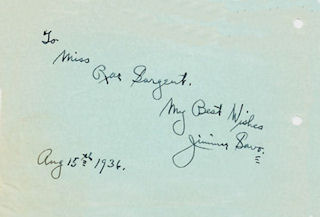 To
Miss
Rae Sargent.
My Best Wishes
Jimmy Savo.
Aug 15th 1936.